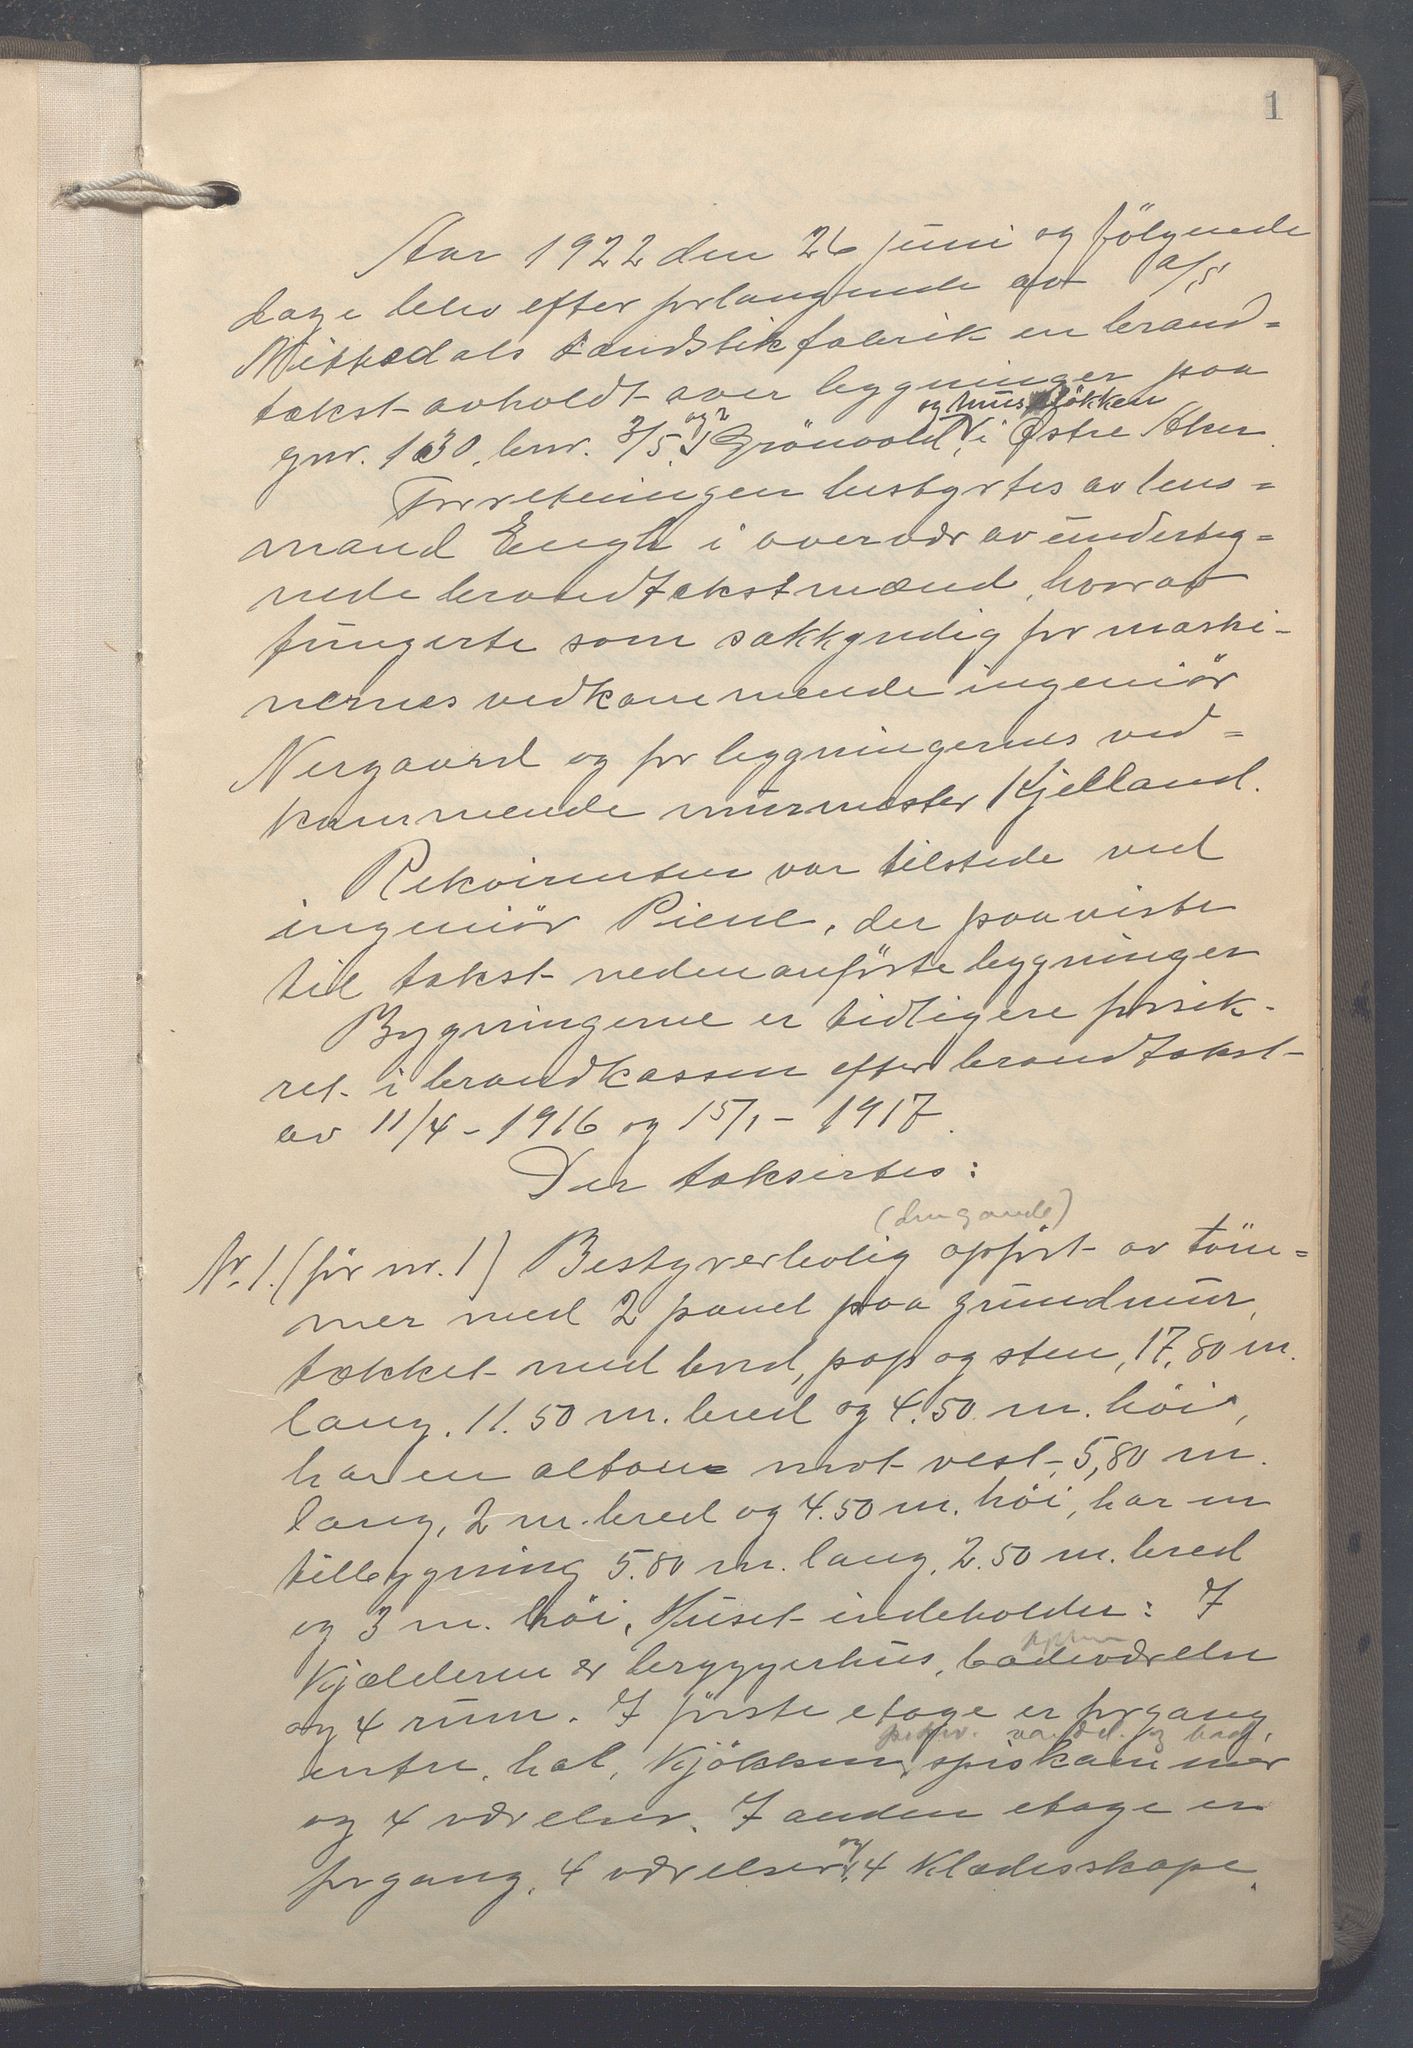 1
Aar 1922 den 26 juni og følgende
dage blev efter forlangende av A/S
Nitedals tændstikfabrik en brand=
takst avholdt over bygninger paa
gnr. 130, brnr. 3/5, og 2 Grönvold, og husløkken i Østre Aker.
Forretningen bestyrtes av lens=
mand Engh i overvær av underteg=
nede brandtakstmænd, hvorav
fungerte som sakkyndig for maski-
nernes vedkommende ingeniör
Nergaard og for bygningernes ved=
kommende murmester Kjelland.
Rekvirenten var tilstede ved
ingeniör Piene, der paaviste
til takst nedenanförte bygninger
Bygningerne er tidligere forsik-
ret i brandkassen efter brandtakst
av 11/4 - 1916 og 15/1 - 1917.
Der taksertes:
Nr. 1. (för nr. 1) Bestyrerbolig opfört av töm=
mer med 2 panel paa grundmur,
tækket med bord, pap og sten, 17,80 m.
lang, 11.50 m. bred og 4.50 m. höi,
har en altan mot vest, 5,80 m.
lang, 2 m. bred og 4.50 m. höi, har en
tilbygning 5.80 m. lang, 2.50 m. bred
og 3 m. höi. Huset indeholder: I
kjælderen er bryggerhus, badeværelse
og 4 rum. I förste etage er forgang,
entre, hal, kjökken, spiskammer
og 4 værelser. I anden etage er
forgang, 4 værelser og 4 klædesskape.